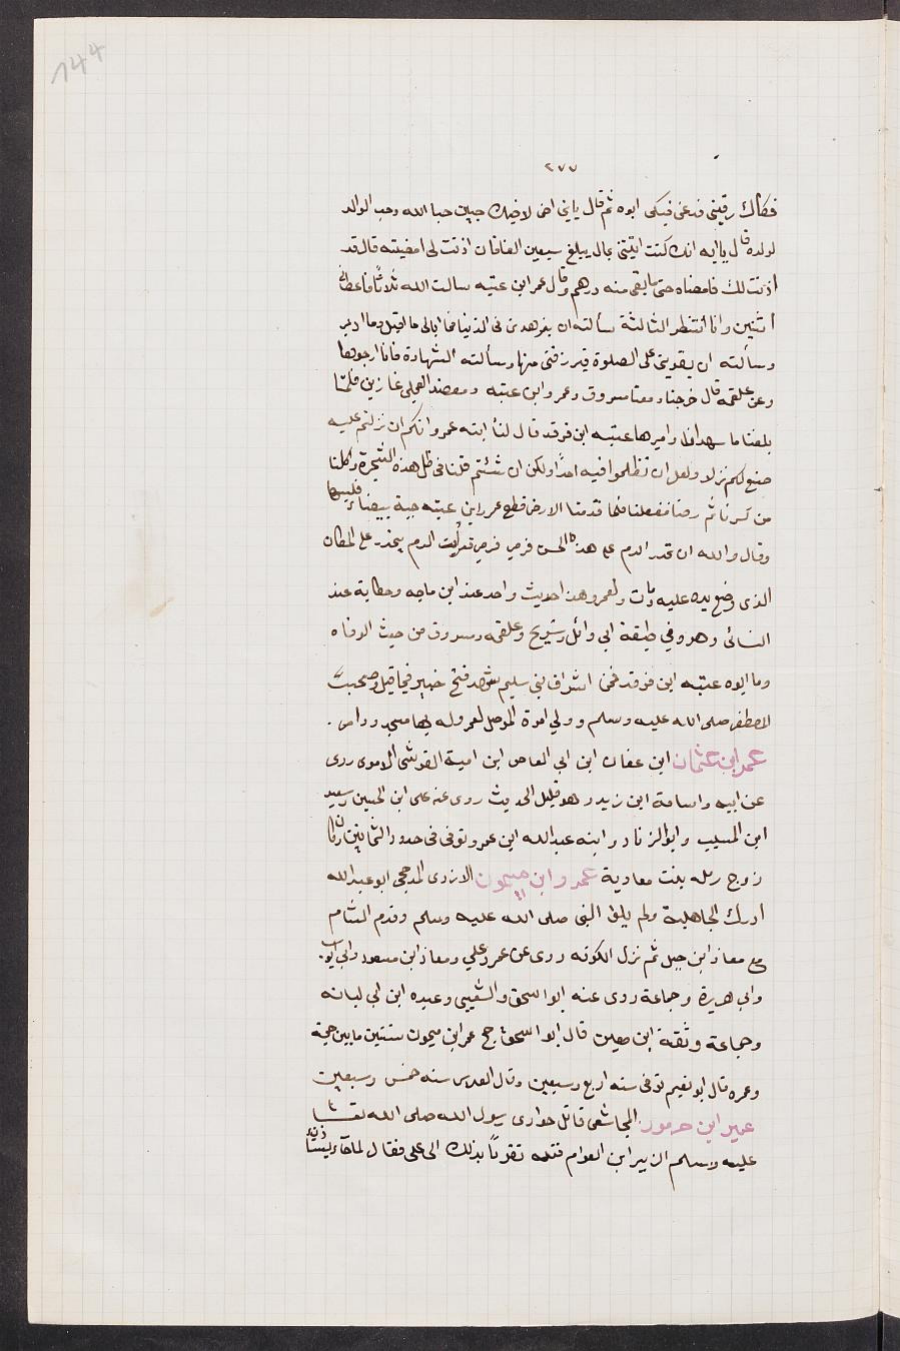 144
٢٧٧
فكاك رقبتي فدعني فبكى ابوه ثم قال يابني اني لاحبك حبين حبا الله وحب الوالد
لولده قال ياابه انك كنت ايتتني بمال يبلغ سبعين الفا فان اذنت لي امضيته قال قد
أذنت لك فامضاه حتى مابقي منه درهم وقال عمر ابن عتبه سالت الله ثلاثاً فاعطاني
أثنين وانا أنتظر الثالثة سألته ان يزهدني في الدنيا فما ابالي ما اقبل وما ادبر
وسألته ان يقويني على الصلوة فرزقني منها وسألته الشهادة فانا ارجوها
وعن علقمه قال خرجنا ومعنا مسروق وعمرو ابن عتبه ومعضد العجلي غازين فلمّا
بلغنا ما سبدان واميرها عتبه ابن فرقد قال لنا ابنه عمرو انكم ان نزلتم عليه
صنع لكم نزلا ولعل ان تظلموا فيه احداً ولكن ان شئتم قلنا في ظل هذه الشجرة واكلنا
من كسرنا ثم رحنا ففعلنا فلما قدمنا الارض قطع عمر ابن عتبه جبة بيضاء فلبسها
وقال والله ان تحدر الدم على هذه لحسن فرمي فرمي فرأيت الدم ينحدر على المكان
الذي وضع يده عليه فمات ولعمرو هذا حديث واحد عند ابن ماجه وحكاية عند
النسائي وهو في طبقة ابي وائل وشريح وعلقمه ومسروق من حيث الوفاه
وما ابوه عتبه ابن فرقد فمن اشراف بني سليم شهد فتح خيبر فيما قيل وصحبت
المصطفى صلى الله عليه وسلم وولي امرة الموصل لعمر وله بها مسجد ودار .
عمر ابن عثمان ابن عفان ابن ابي العاص ابن امية القرشي الاموى روى
عن ابيه واسامة ابن زيد وهو قليل الحديث روى عنه على ابن الحسين وسعيد
ابن المسيب وابو الزناد وابنه عبدالله ابن عمرو توفى في حدود الثمانين وكان
زوج رمله بنت معاوية عمرو ابن ميمون الازدى المدحجي ابو عبدالله
ادرك الجاهلية ولم يلق النبي صلى الله عليه وسلم وقدم الشام
مع معاذ ابن جبل ثم نزل الكوفه روى عن عمر وعلي ومعاذ ابن مسعود وابي ايوب
وابي هريرة وجماعة روى عنه ابو اسحق والشعبي وعبده ابن ابي لبابه
وجماعة وثقة ابن معين قال ابو اسحق حج عمر ابن ميمون ستين ما بين حجة
وعمره قال ابو نعيم توفى سنه اربع وسبعين وقال سنه خمس وسبعين
عمير ابن جرموز المجاشعي قاتل حوارى رسول الله صلى الله تعا
عليه وسلم الزبير ابن العوام قتله تقرباً بذلك الى على فقال لما جآء